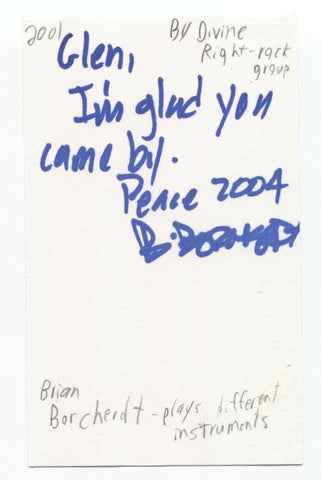 2001
By Divine
Right-rock
group
Glen,
I'm glad you
came by.
Peace 2004
Brian
Borcherdt - plays different
instruments